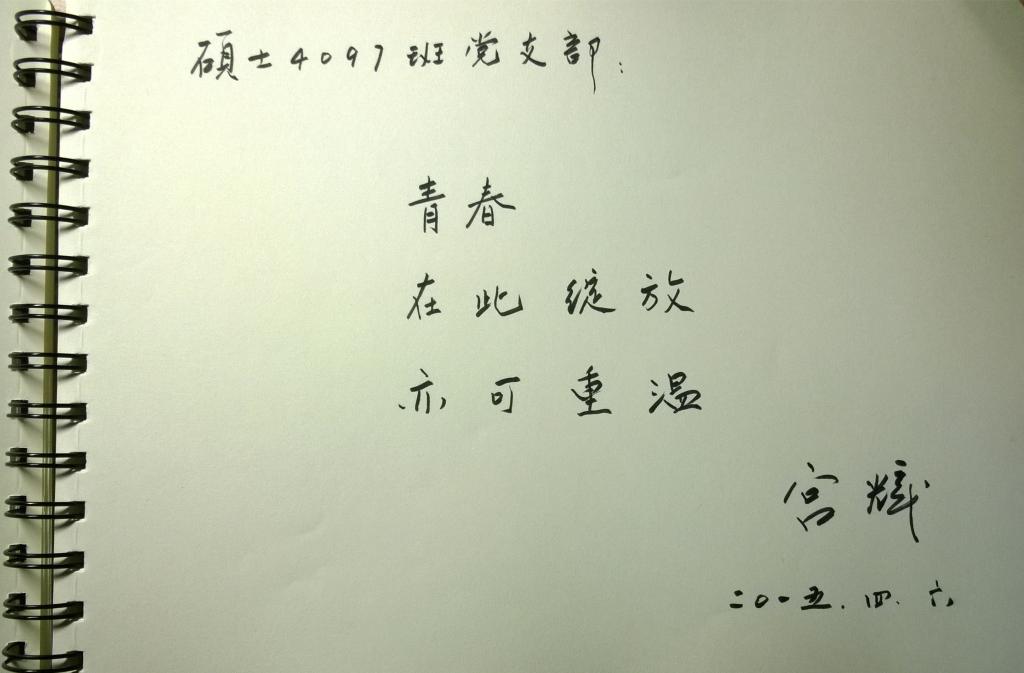 碩士4097班党支部:
青春
在此绽放
亦可重温
宫辉
二〇一五.四.六